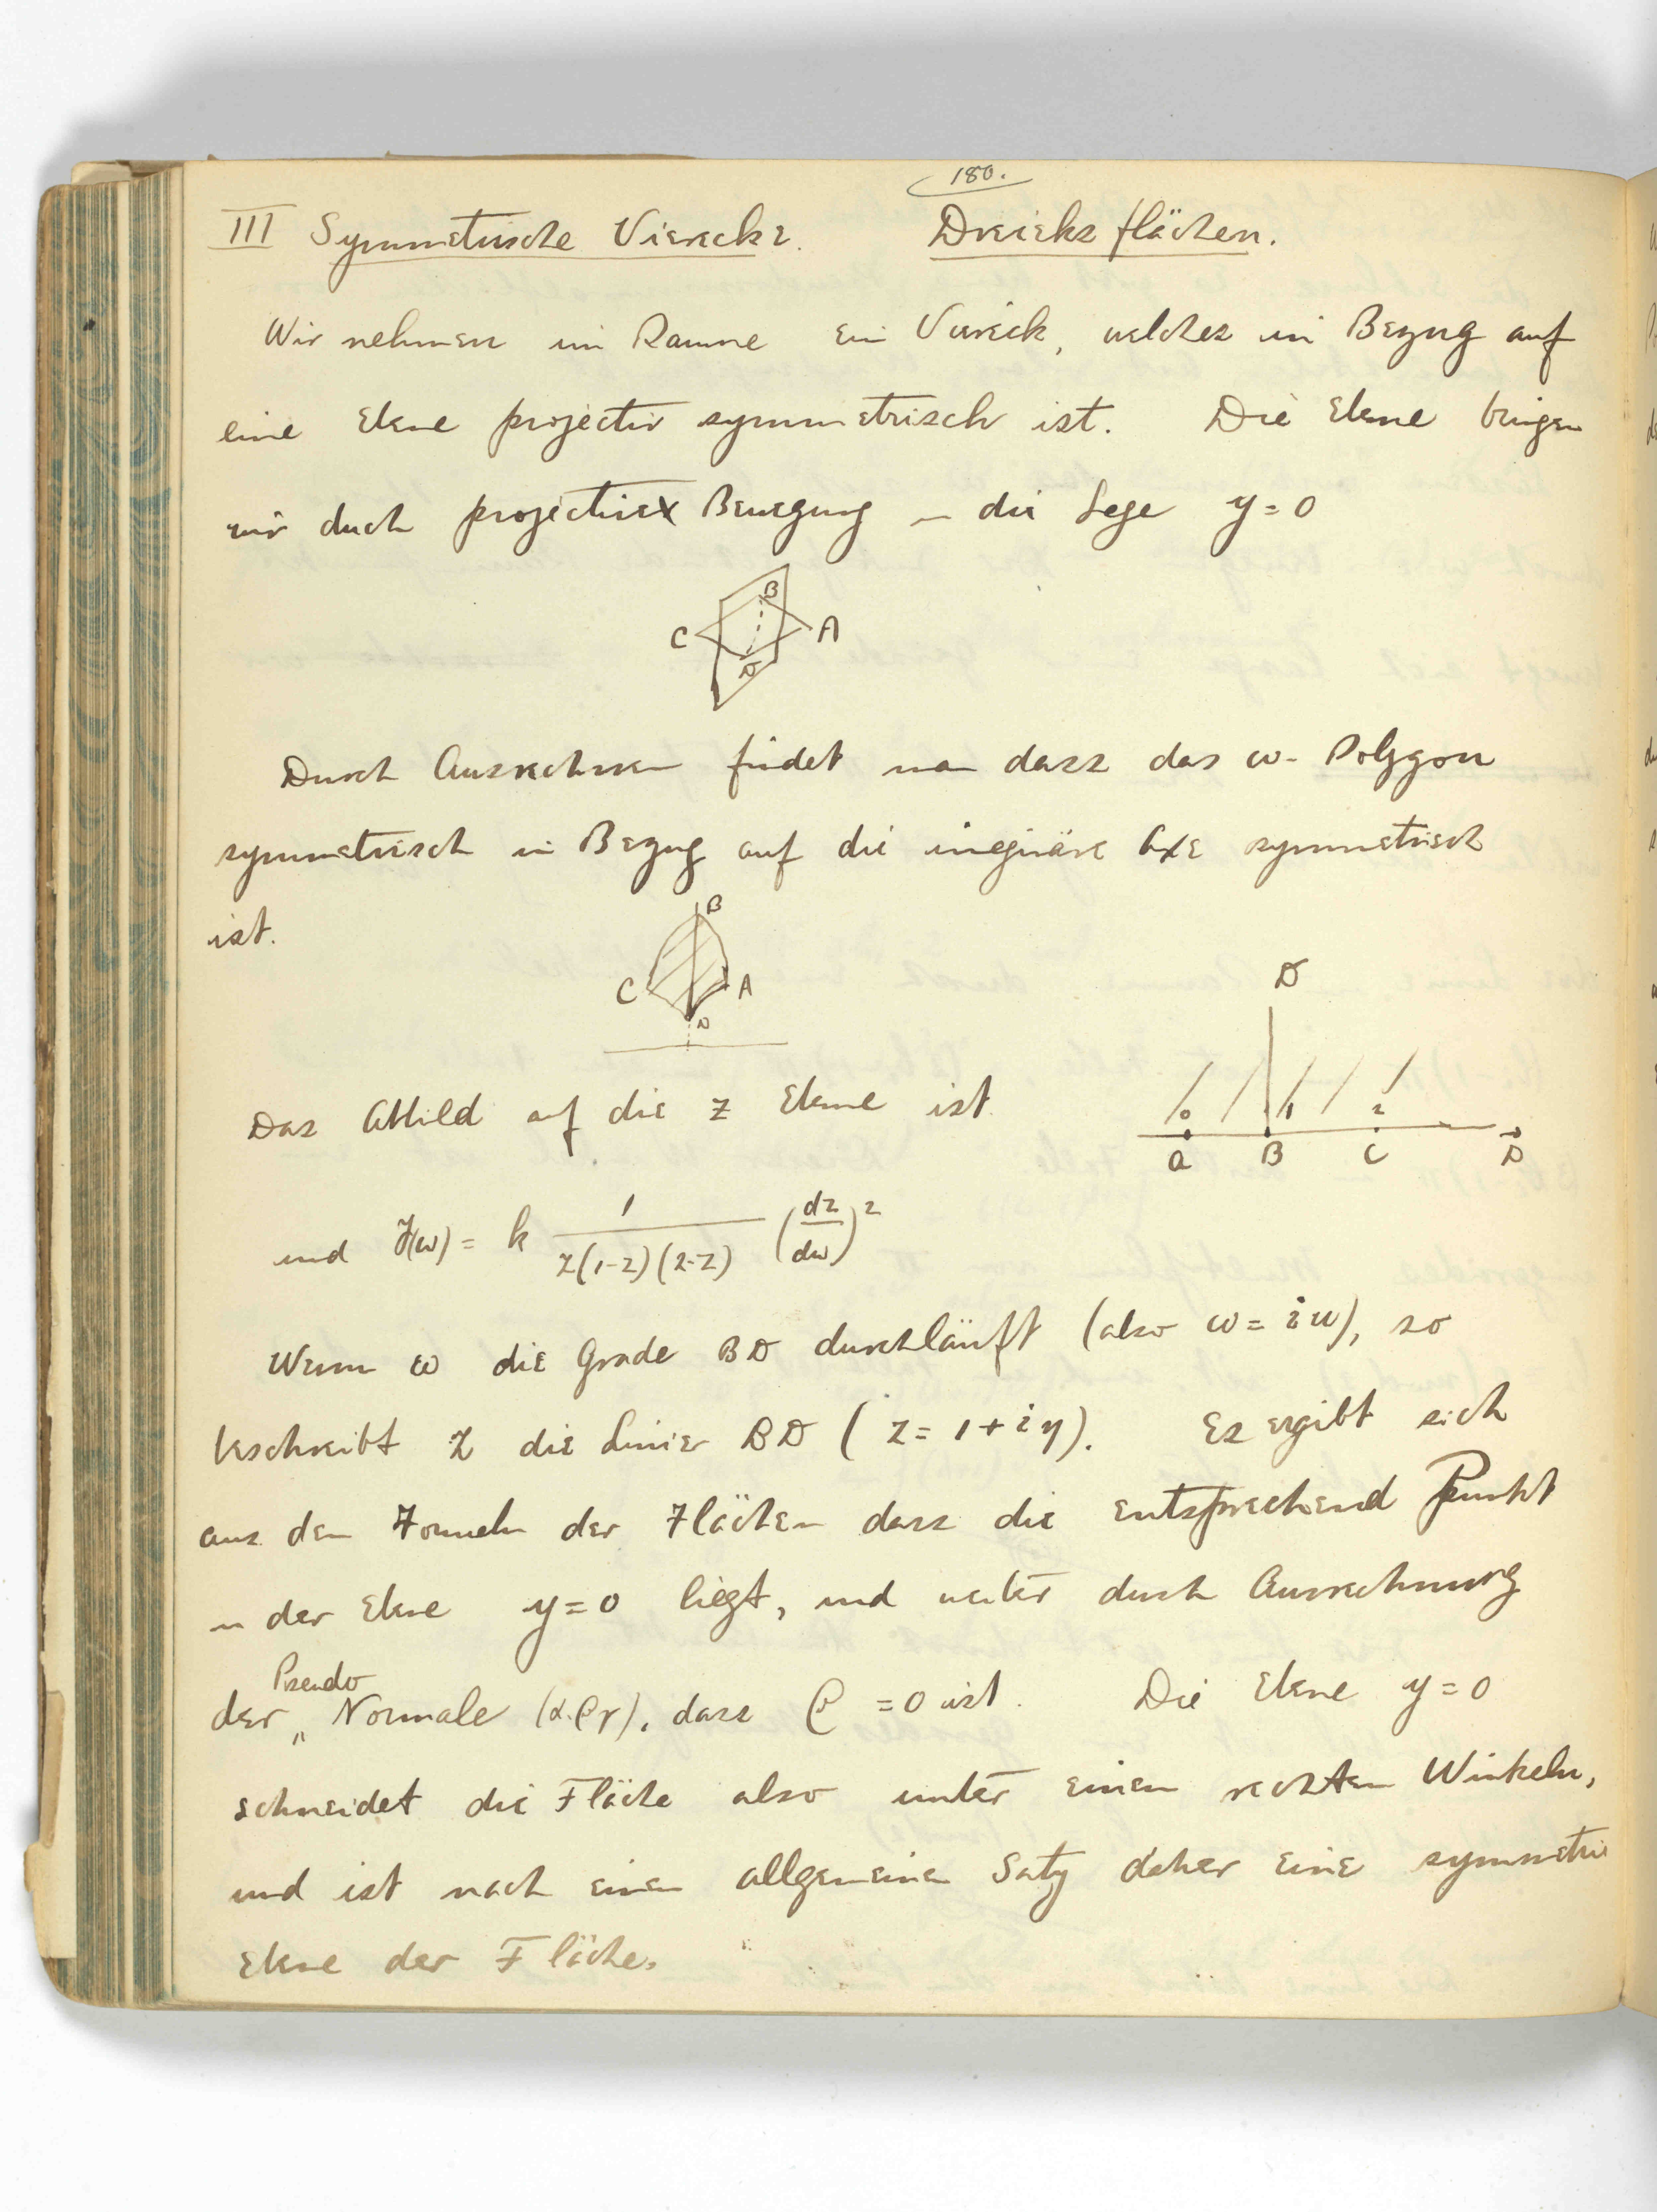 180.
III Symmetrische Vierecke. Dreiecksflächen.
Wir nehmen im Raume ein Viereck, welches in Bezug auf
eine Ebene projectiv symmetrisch ist. Die Ebene bringen
wir durch projective Bewegung in die Lage y = 0
B
C A
D
Durch Ausrechnen findet man dass das ω-Polygon
symmetrisch in Bezug auf die imaginäre Axe symmetrisch
ist.
B
C A
D
D
Das Abbild auf die z Ebene ist
0 1 2
A B C D
und F(ω) = k 1/(z(1-z)(2-z)) (dz/dω)²
Wenn ω die Grade BD durchläuft (also ω = iu), so
beschreibt z die Linie BD (z = 1 + iy). Es ergibt sich
aus den Formeln der Flächen dass die entsprechend Punkt
in der Ebene y = 0 liegt, und weiter durch Ausrechnung
der Pseudo Normale (α.β γ), dass β = 0 ist. Die Ebene y = 0
schneidet die Fläche also unter einen rechten Winkeln,
und ist nach einen allgemeinen Satz daher eine symmetrie
Ebene der Fläche.